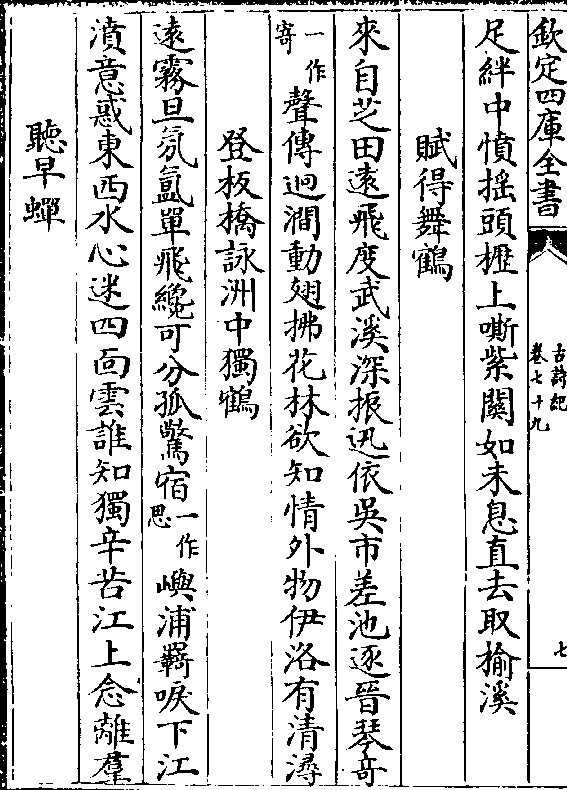 欽定四庫全書
古詩紀
卷七十九
七
足絆中憤揺頭櫪上嘶紫關如未息直去取揄溪
賦得舞鶴
來自芝田逺飛度武溪深振迅依吳市差池逐晉琴竒
一作寄聲傳迥澗動翅拂花林欲知情外物伊洛有清潯
登板橋詠洲中獨鶴
逺霧旦氛氲單飛纔可分孤驚宿一作思嶼浦羇唳下江
濆意惑東西水心迷四面雲誰知獨辛苦江上念離羣
聽早蟬